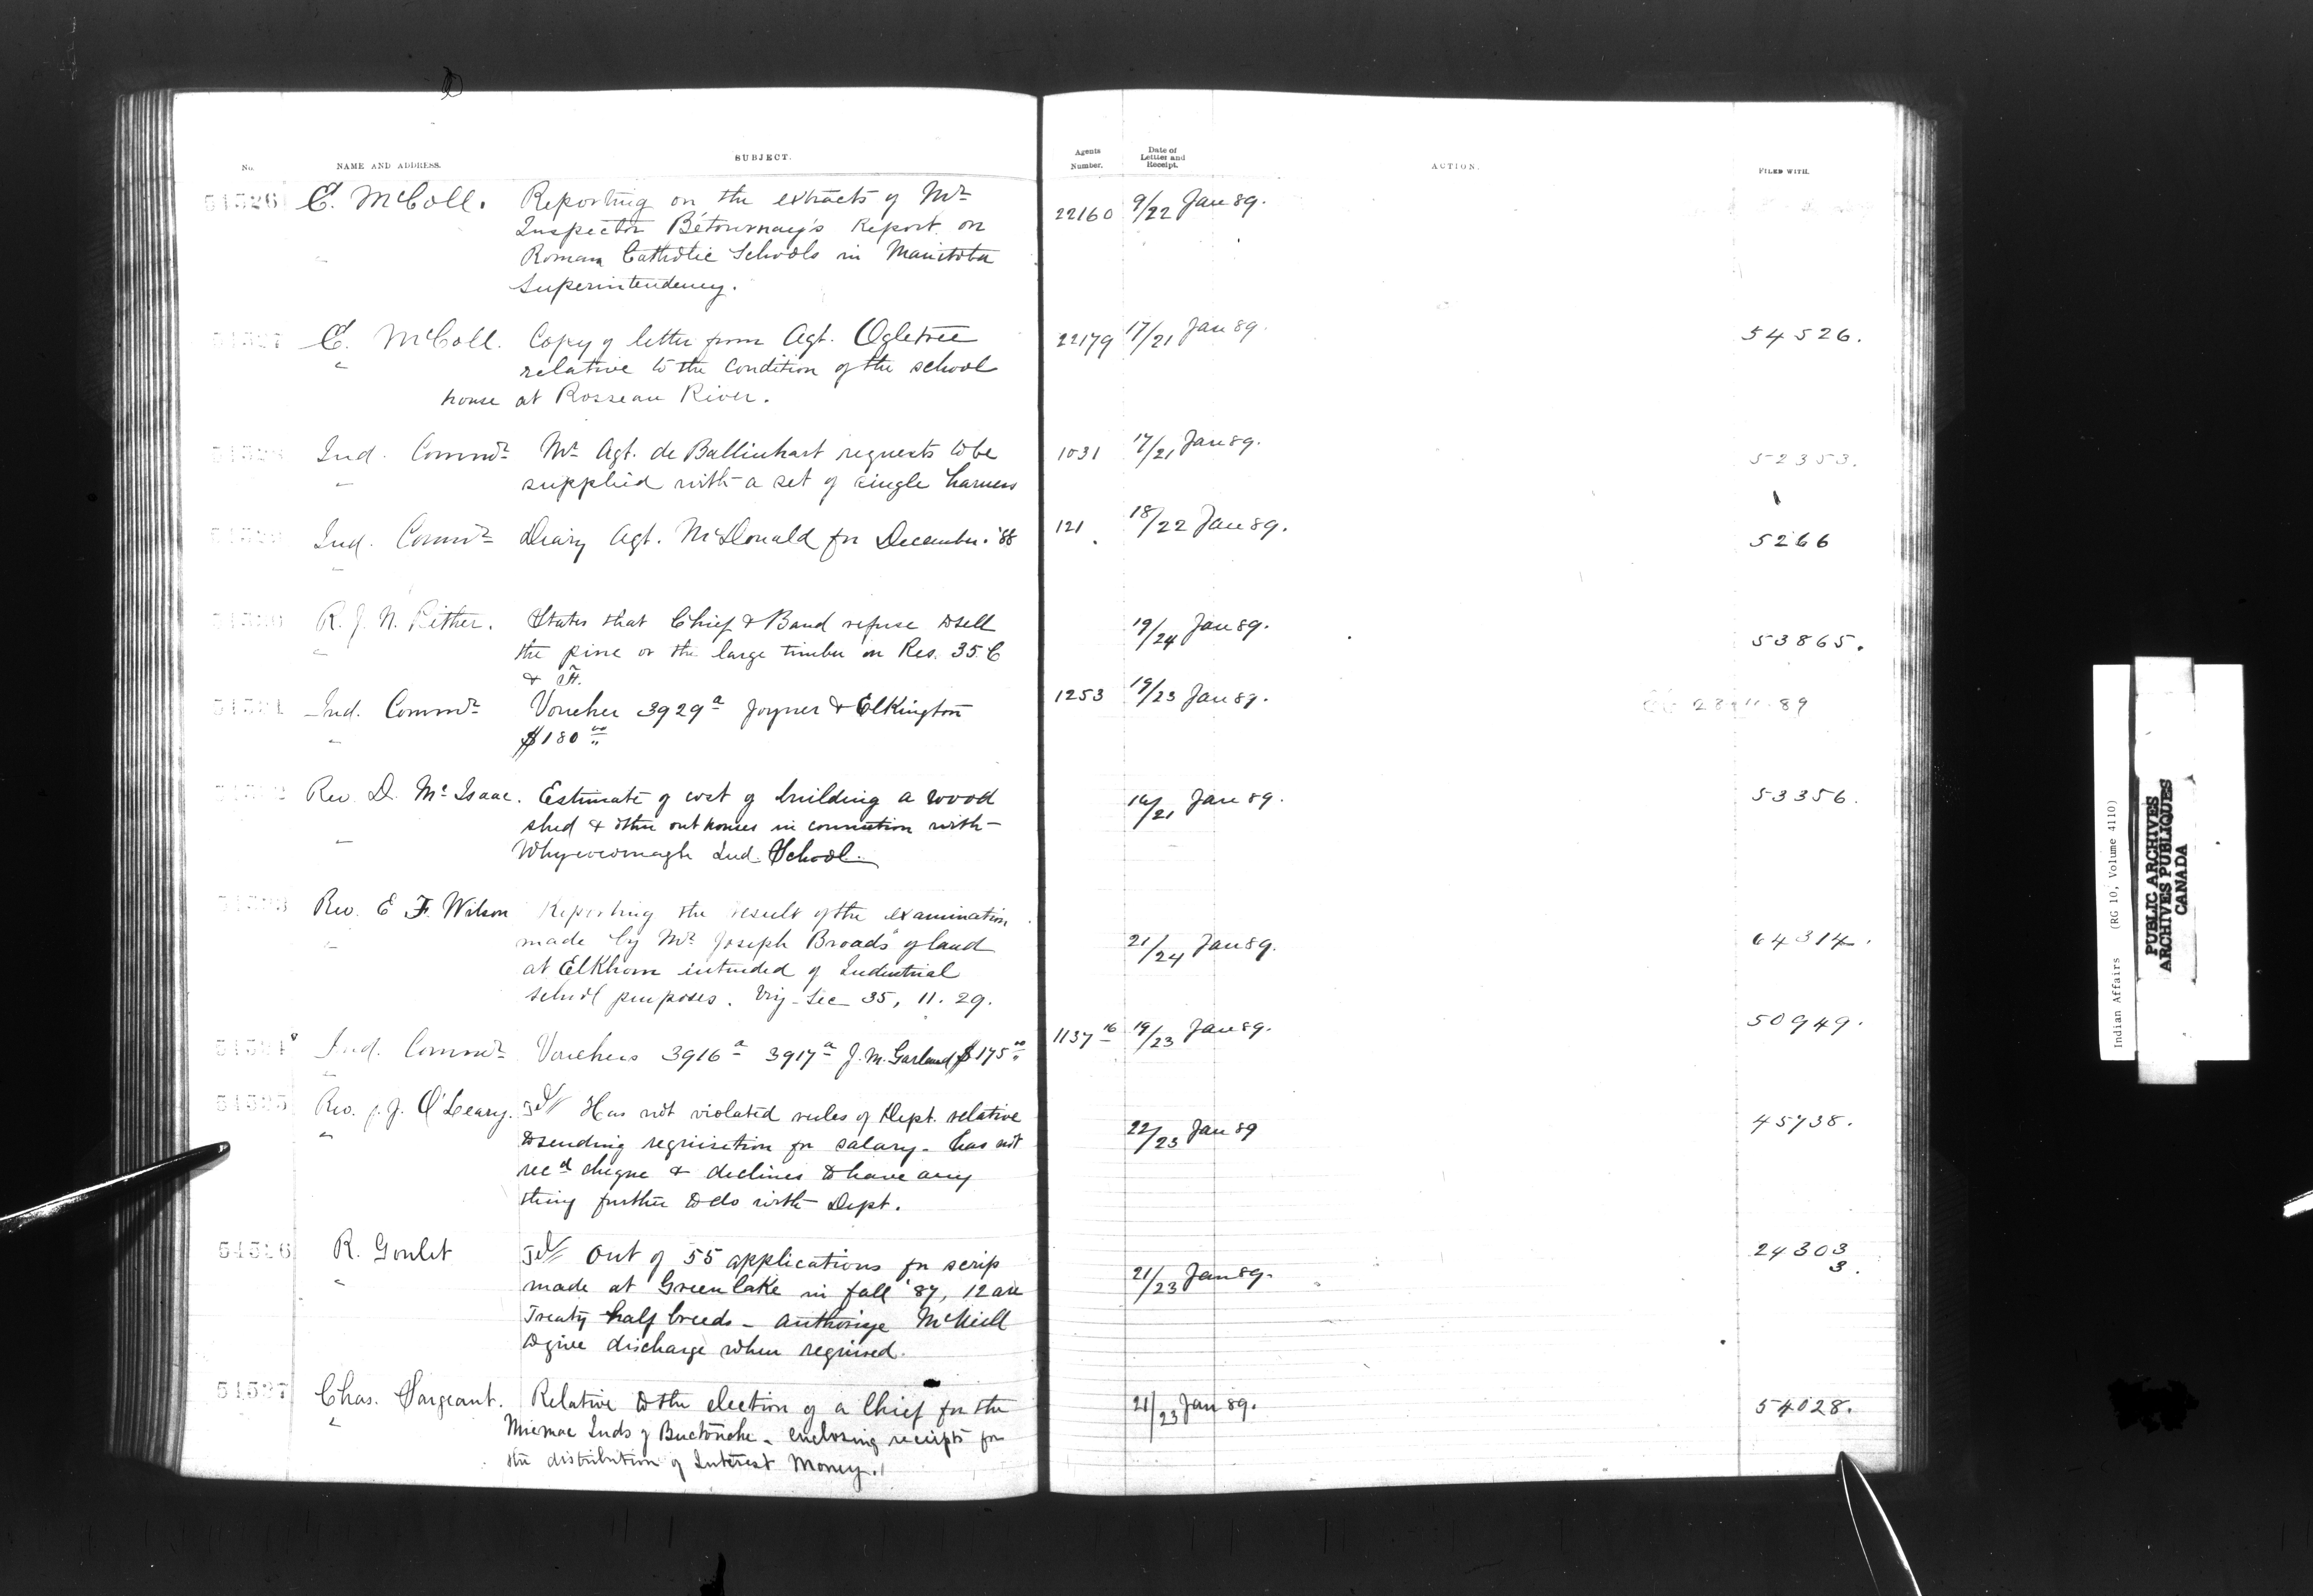 No. NAME AND ADDRESS. SUBJECT. Agents Number. Date of Letter and Receipt. ACTION. FILED WITH.
54526 E. McColl. Reporting on the extracts of Mr 22160 9/22 Jan 89.
Inspector Bétournay's Report on
Roman Catholic Schools in Manitoba
Superintendency.
54527 E. McColl. Copy of letter from Agt. Ogletree 22179 17/21 Jan 89. 54526.
relative to the condition of the school
house at Rosseau River.
Ind. Commr Mr Agt. de Ballinhart requests to be 1031 17/21 Jan 89. 52353.
supplied with a set of single harness
Ind. Commr Diary Agt. McDonald for December. '88 121 18/22 Jan 89. 5266
R. J. N. Pither. States that Chief & Band refuse to sell 19/24 Jan 89. 53865.
the pine or the large timber on Res. 35. C
& H.
Ind. Commr Voucher 3929a Joyner & Elkington 1253 19/23 Jan 89. 89
$180 00
Rev. D. McIsaac. Estimate of cost of building a wood 16/21 Jan 89. 53356.
shed & other out houses in connection with
Whycocomagh Ind. School.
Rev. E F. Wilson Reporting the result of the examination
made by Mr Joseph Broads of land 21/24 Jan 89. 64314.
at Elkhorn intended of Industrial
school purposes. Viz. Sec 35, 11. 29.
Ind. Commr Vouchers 3916a 3917a J. M. Garland $175 00 1137 16 19/23 Jan 89. 50949.
54535 Rev. J. O'Leary. Tel Has not violated rules of Dept. relative 22/23 Jan 89 45738.
to sending requisition for salary. has not
recd cheque & declines to have any
thing further to do with Dept.
54536 R. Goulet Tel Out of 55 applications for scrip 21/23 Jan 89. 24303
3.
made at Green Lake in fall '87, 12 are
Treaty half breeds - authorize McNeill
to give discharge when required.
54537 Chas. Sargeant. Relative to the election of a Chief for the 21/23 Jan 89. 54028.
Micmac Inds of Buctouche - enclosing receipts for
the distribution of Interest Money.
Indian Affairs (RG 10, Volume 4110)
PUBLIC ARCHIVES
ARCHIVES PUBLIQUES
CANADA